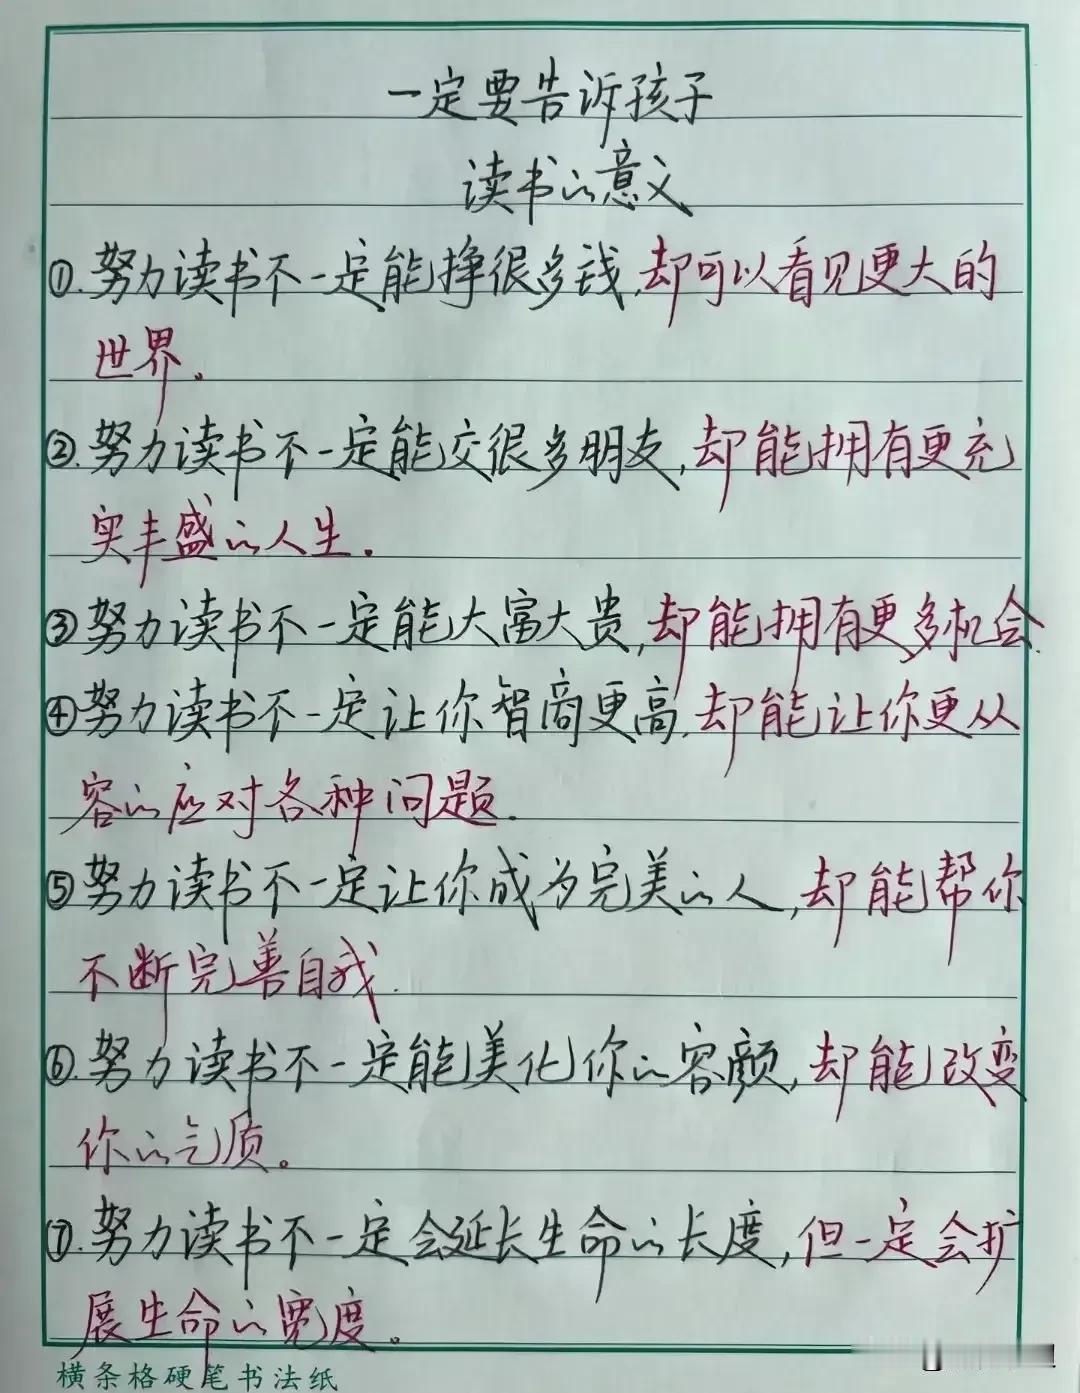 一定要告诉孩子
读书的意义
①.努力读书不一定能挣很多钱,却可以看见更大的
世界。
②.努力读书不一定能交很多朋友,却能拥有更充
实丰盛的人生.
③努力读书不一定能大富大贵,却能拥有更多机会.
④努力读书不一定让你智商更高,却能让你更从
容的应对各种问题.
⑤努力读书不一定让你成为完美的人,却能帮你
不断完善自我.
⑥.努力读书不一定能美化你的容颜,却能改变
你的气质。
⑦.努力读书不一定会延长生命的长度,但一定会扩
展生命的宽度。
横条格硬笔书法纸